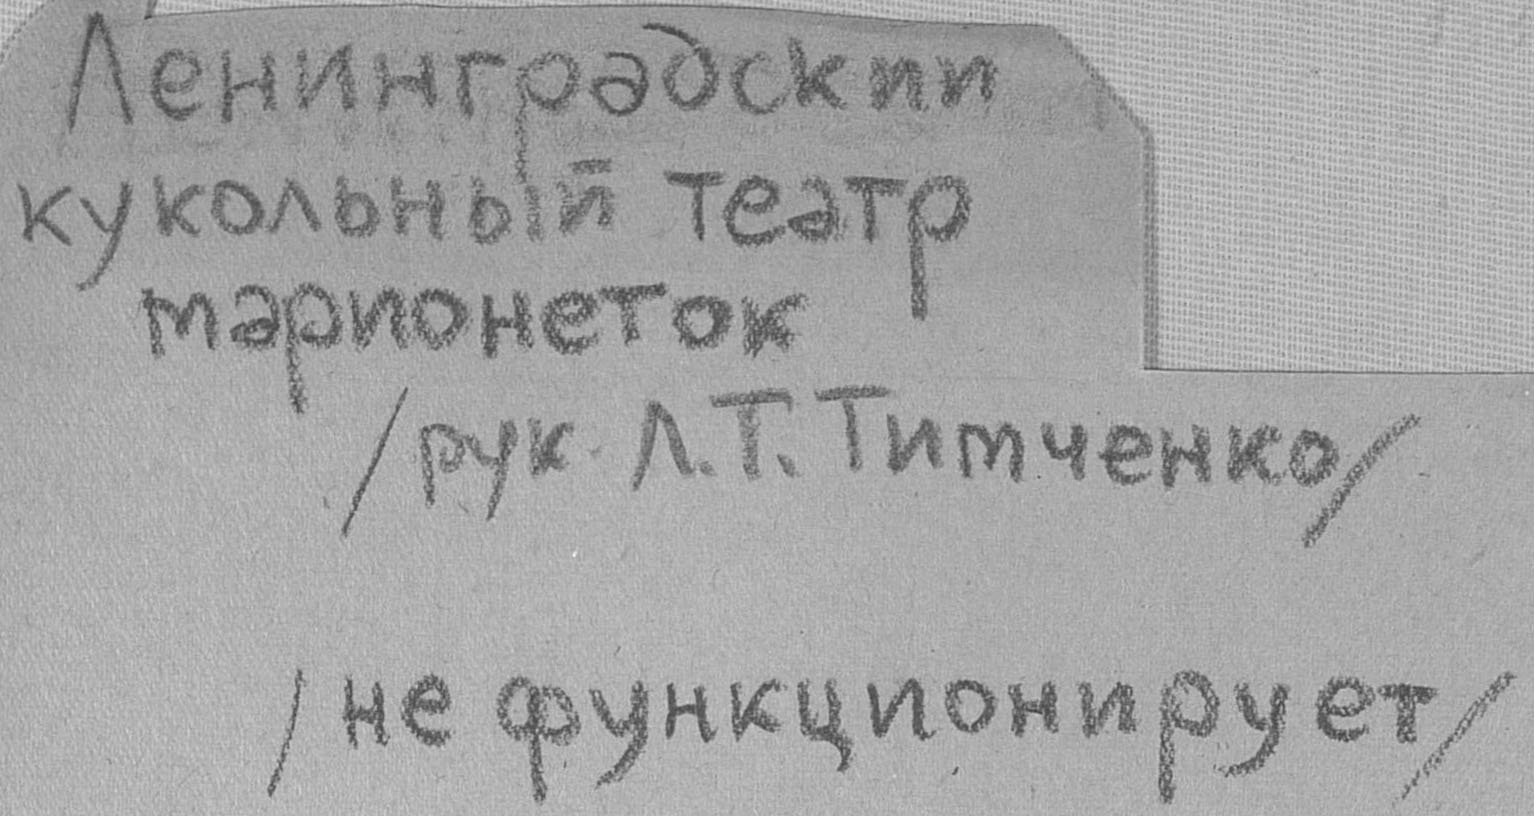 Ленинградский
кукольный театр
марионеток
/рук. Л.Т. Титченко/
/не функционирует/